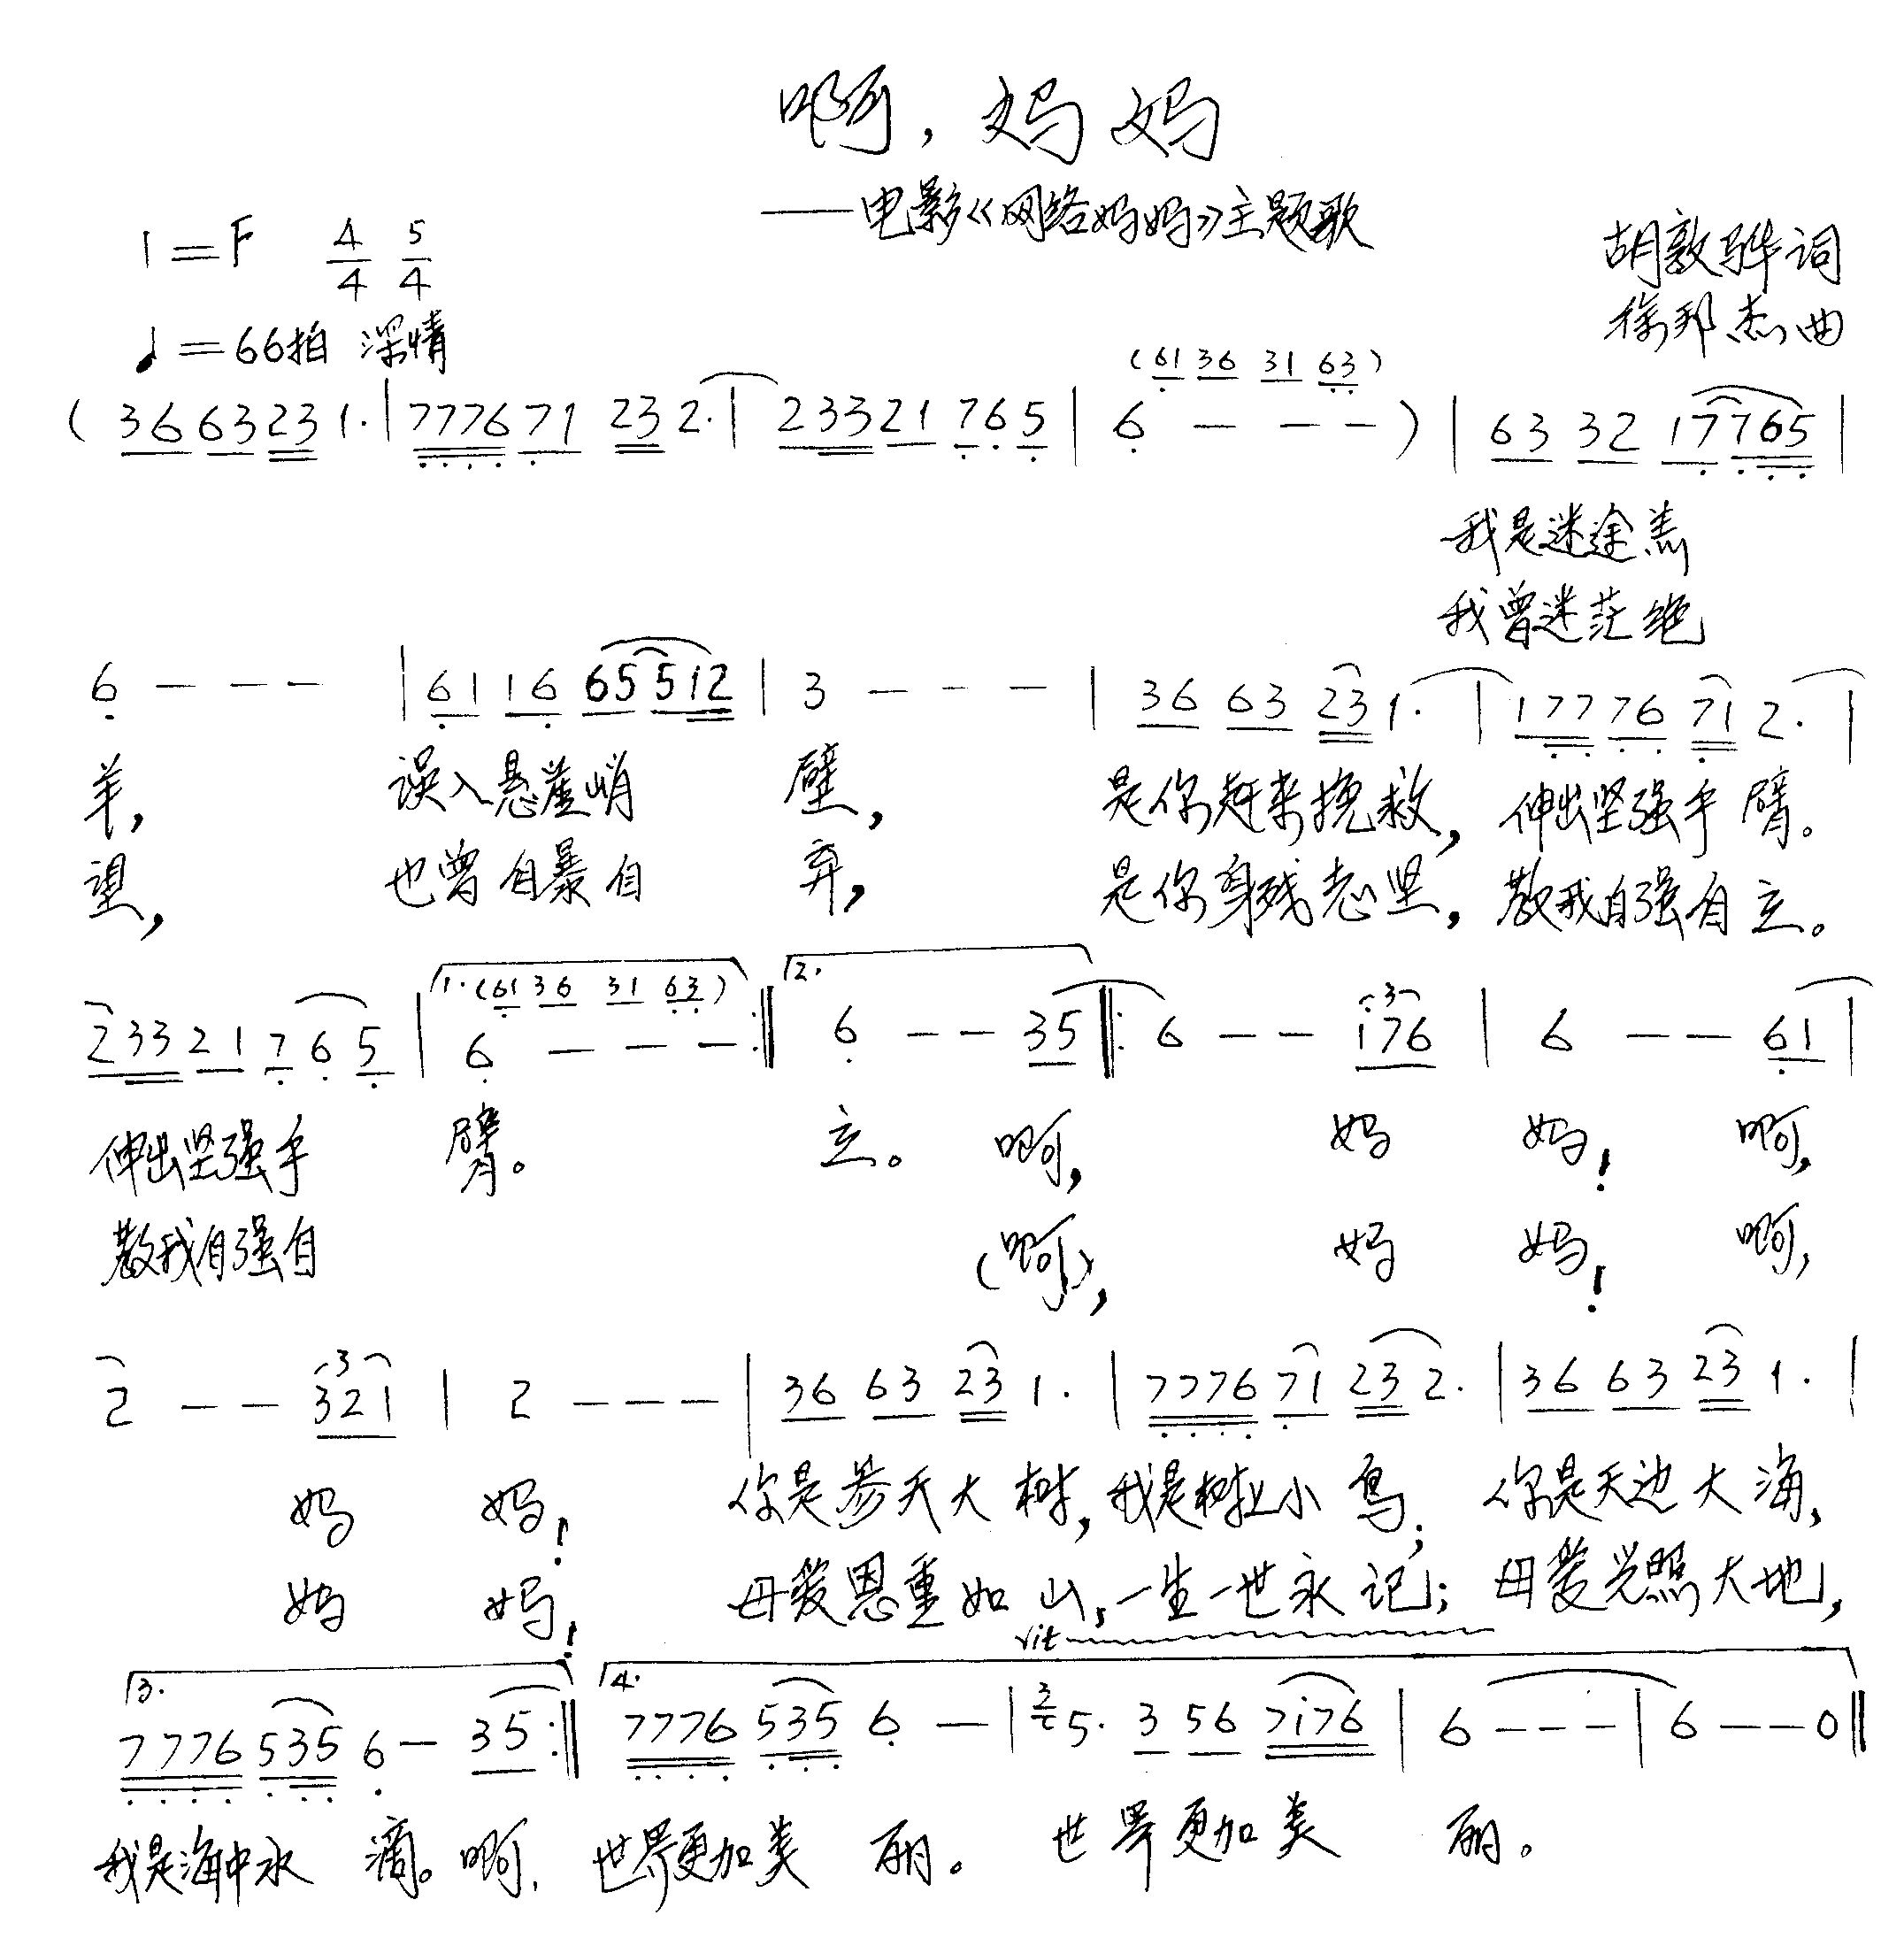 啊,妈妈
——电影《网络妈妈》主题歌
1=F 4/4 5/4
胡敦骅词
♩=66拍 深情
徐邦杰曲
(61 36 31 63)
(36 63 23 1·|7776 71 23 2·|233 21 765|6 - - -)|63 32 17 765|
我是迷途羔
我曾迷茫绝
6 - - -|61 16 65 512|3 - - -|36 63 23 1·|177 76 71 2·|
羊, 误入悬崖峭 壁, 是你赶来挽救, 伸出坚强手臂。
望, 也曾自暴自 弃, 是你身残志坚, 教我自强自立。
1.(61 36 31 63) 2.
233 21 765|6 - - -:‖6 - - 35‖:6 - - 176|6 - - 61|
伸出坚强手 臂。 立。 啊, 妈 妈! 啊,
教我自强自 (啊), 妈 妈! 啊,
2 - - 321|2 - - -|36 63 23 1·|7776 71 23 2·|36 63 23 1·|
妈 妈! 你是参天大树,我是树上小鸟; 你是天边大海,
妈 妈! 母爱恩重如山,一生一世永记; 母爱光照大地,
rit
3. 4.
7776 535 6 - 35:‖7776 535 6 -|5· 3 56 7176|6 - - -|6 - - 0‖
我是海中水 滴。啊, 世界更加美 丽。 世界更加美 丽。